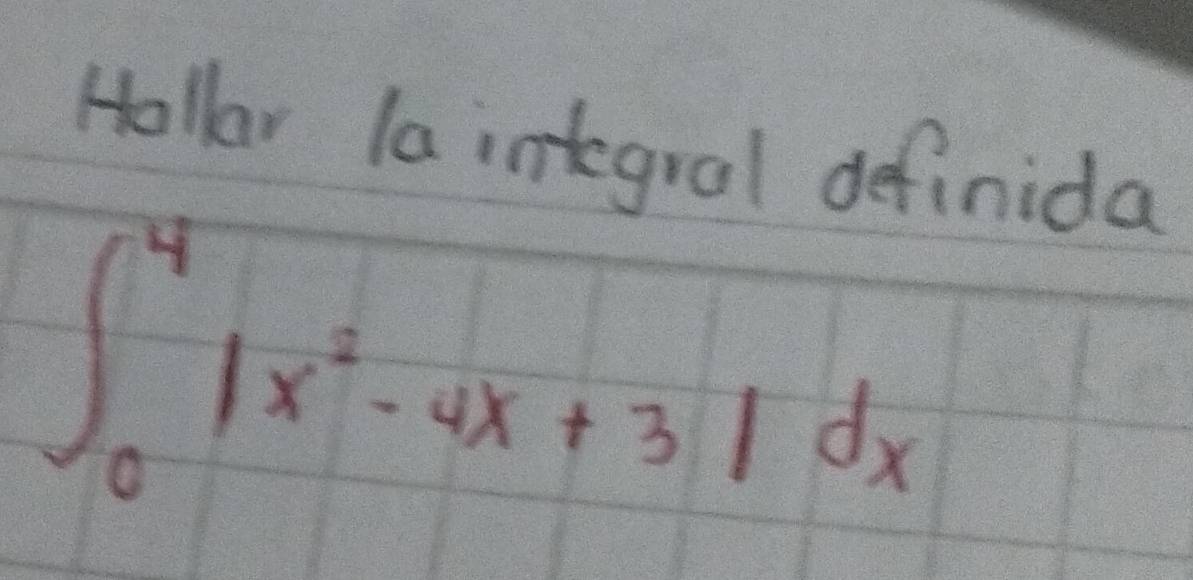 Hallar la integral definida
∫₀⁴ |x² - 4x + 3| dx